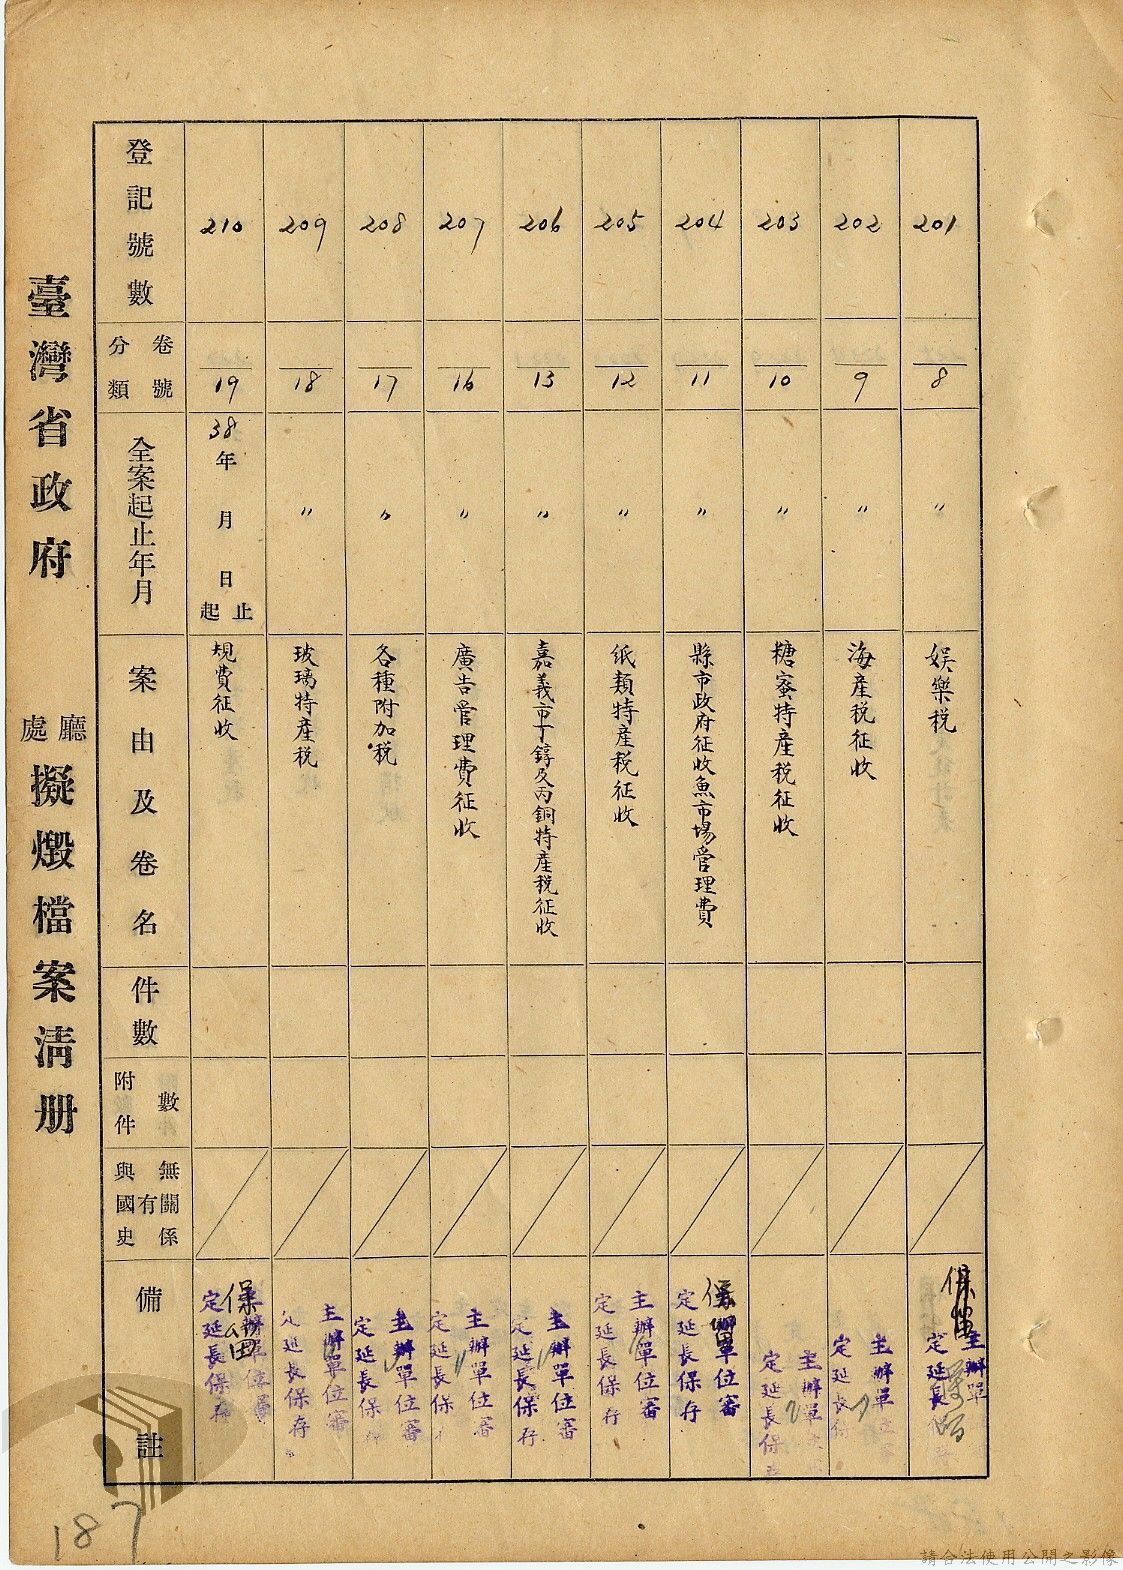 臺灣省政府
廳
處
擬燬檔案淸册
登記號數
卷號
分類
全案起止年月
案由及卷名
件數
附件數
與國史有無關係
備註
201
8
〃
娛樂稅
保留
主辦單
定延長保存
202
9
〃
海產稅征收
主辦單位審
定延長保
203
10
〃
糖蜜特產稅征收
主辦單
定延長保存
204
11
〃
縣市政府征收魚市場管理費
保留
主辦單位審
定延長保存
205
12
〃
紙類特產稅征收
主辦單位審
定延長保存
206
13
〃
嘉義市丁錞及丙銅特產稅征收
主辦單位審
定延長保存
207
16
〃
廣告管理費征收
主辦單位審
定延長保
208
17
〃
各種附加稅
主辦單位審
定延長保
209
18
〃
玻璃特產稅
主辦單位審
定延長保存
210
19
38年 月 日
起止
規費征收
保留
主辦單位審
定延長保存
187
請合法使用公開之影像